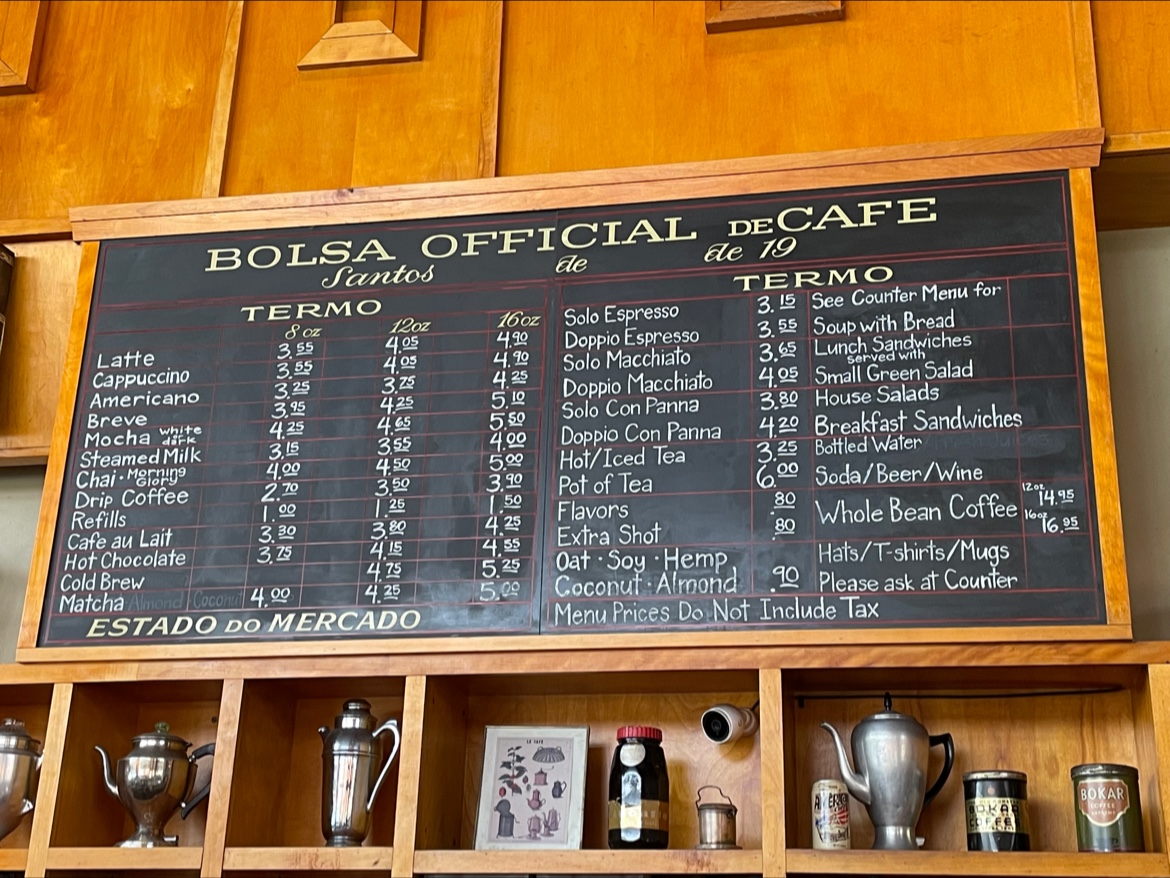 BOLSA OFFICIAL DE CAFE
Santos de de 19
TERMO
8 oz 12oz 16oz
Latte 3.55 4.05 4.90
Cappuccino 3.55 4.05 4.90
Americano 3.25 3.75 4.25
Breve 3.95 4.25 5.10
Mocha white dark 4.25 4.65 5.50
Steamed Milk 3.15 3.55 4.00
Chai · Morning Glory 4.00 4.50 5.00
Drip Coffee 2.70 3.50 3.90
Refills 1.00 1.25 1.50
Cafe au Lait 3.30 3.80 4.25
Hot Chocolate 3.75 4.15 4.55
Cold Brew 4.75 5.25
Matcha Almond Coconut 4.00 4.25 5.00
ESTADO DO MERCADO
TERMO
Solo Espresso 3.15
Doppio Espresso 3.55
Solo Macchiato 3.65
Doppio Macchiato 4.05
Solo Con Panna 3.80
Doppio Con Panna 4.20
Hot/Iced Tea 3.25
Pot of Tea 6.00
Flavors .80
Extra Shot .80
Oat · Soy · Hemp
Coconut · Almond .90
Menu Prices Do Not Include Tax
See Counter Menu for
Soup with Bread
Lunch Sandwiches
served with
Small Green Salad
House Salads
Breakfast Sandwiches
Bottled Water
Soda/Beer/Wine
Whole Bean Coffee 12oz 14.95
16oz 16.95
Hats/T-shirts/Mugs
Please ask at Counter
LE CAFÉ
BOKAR
COFFEE
BOKAR
COFFEE